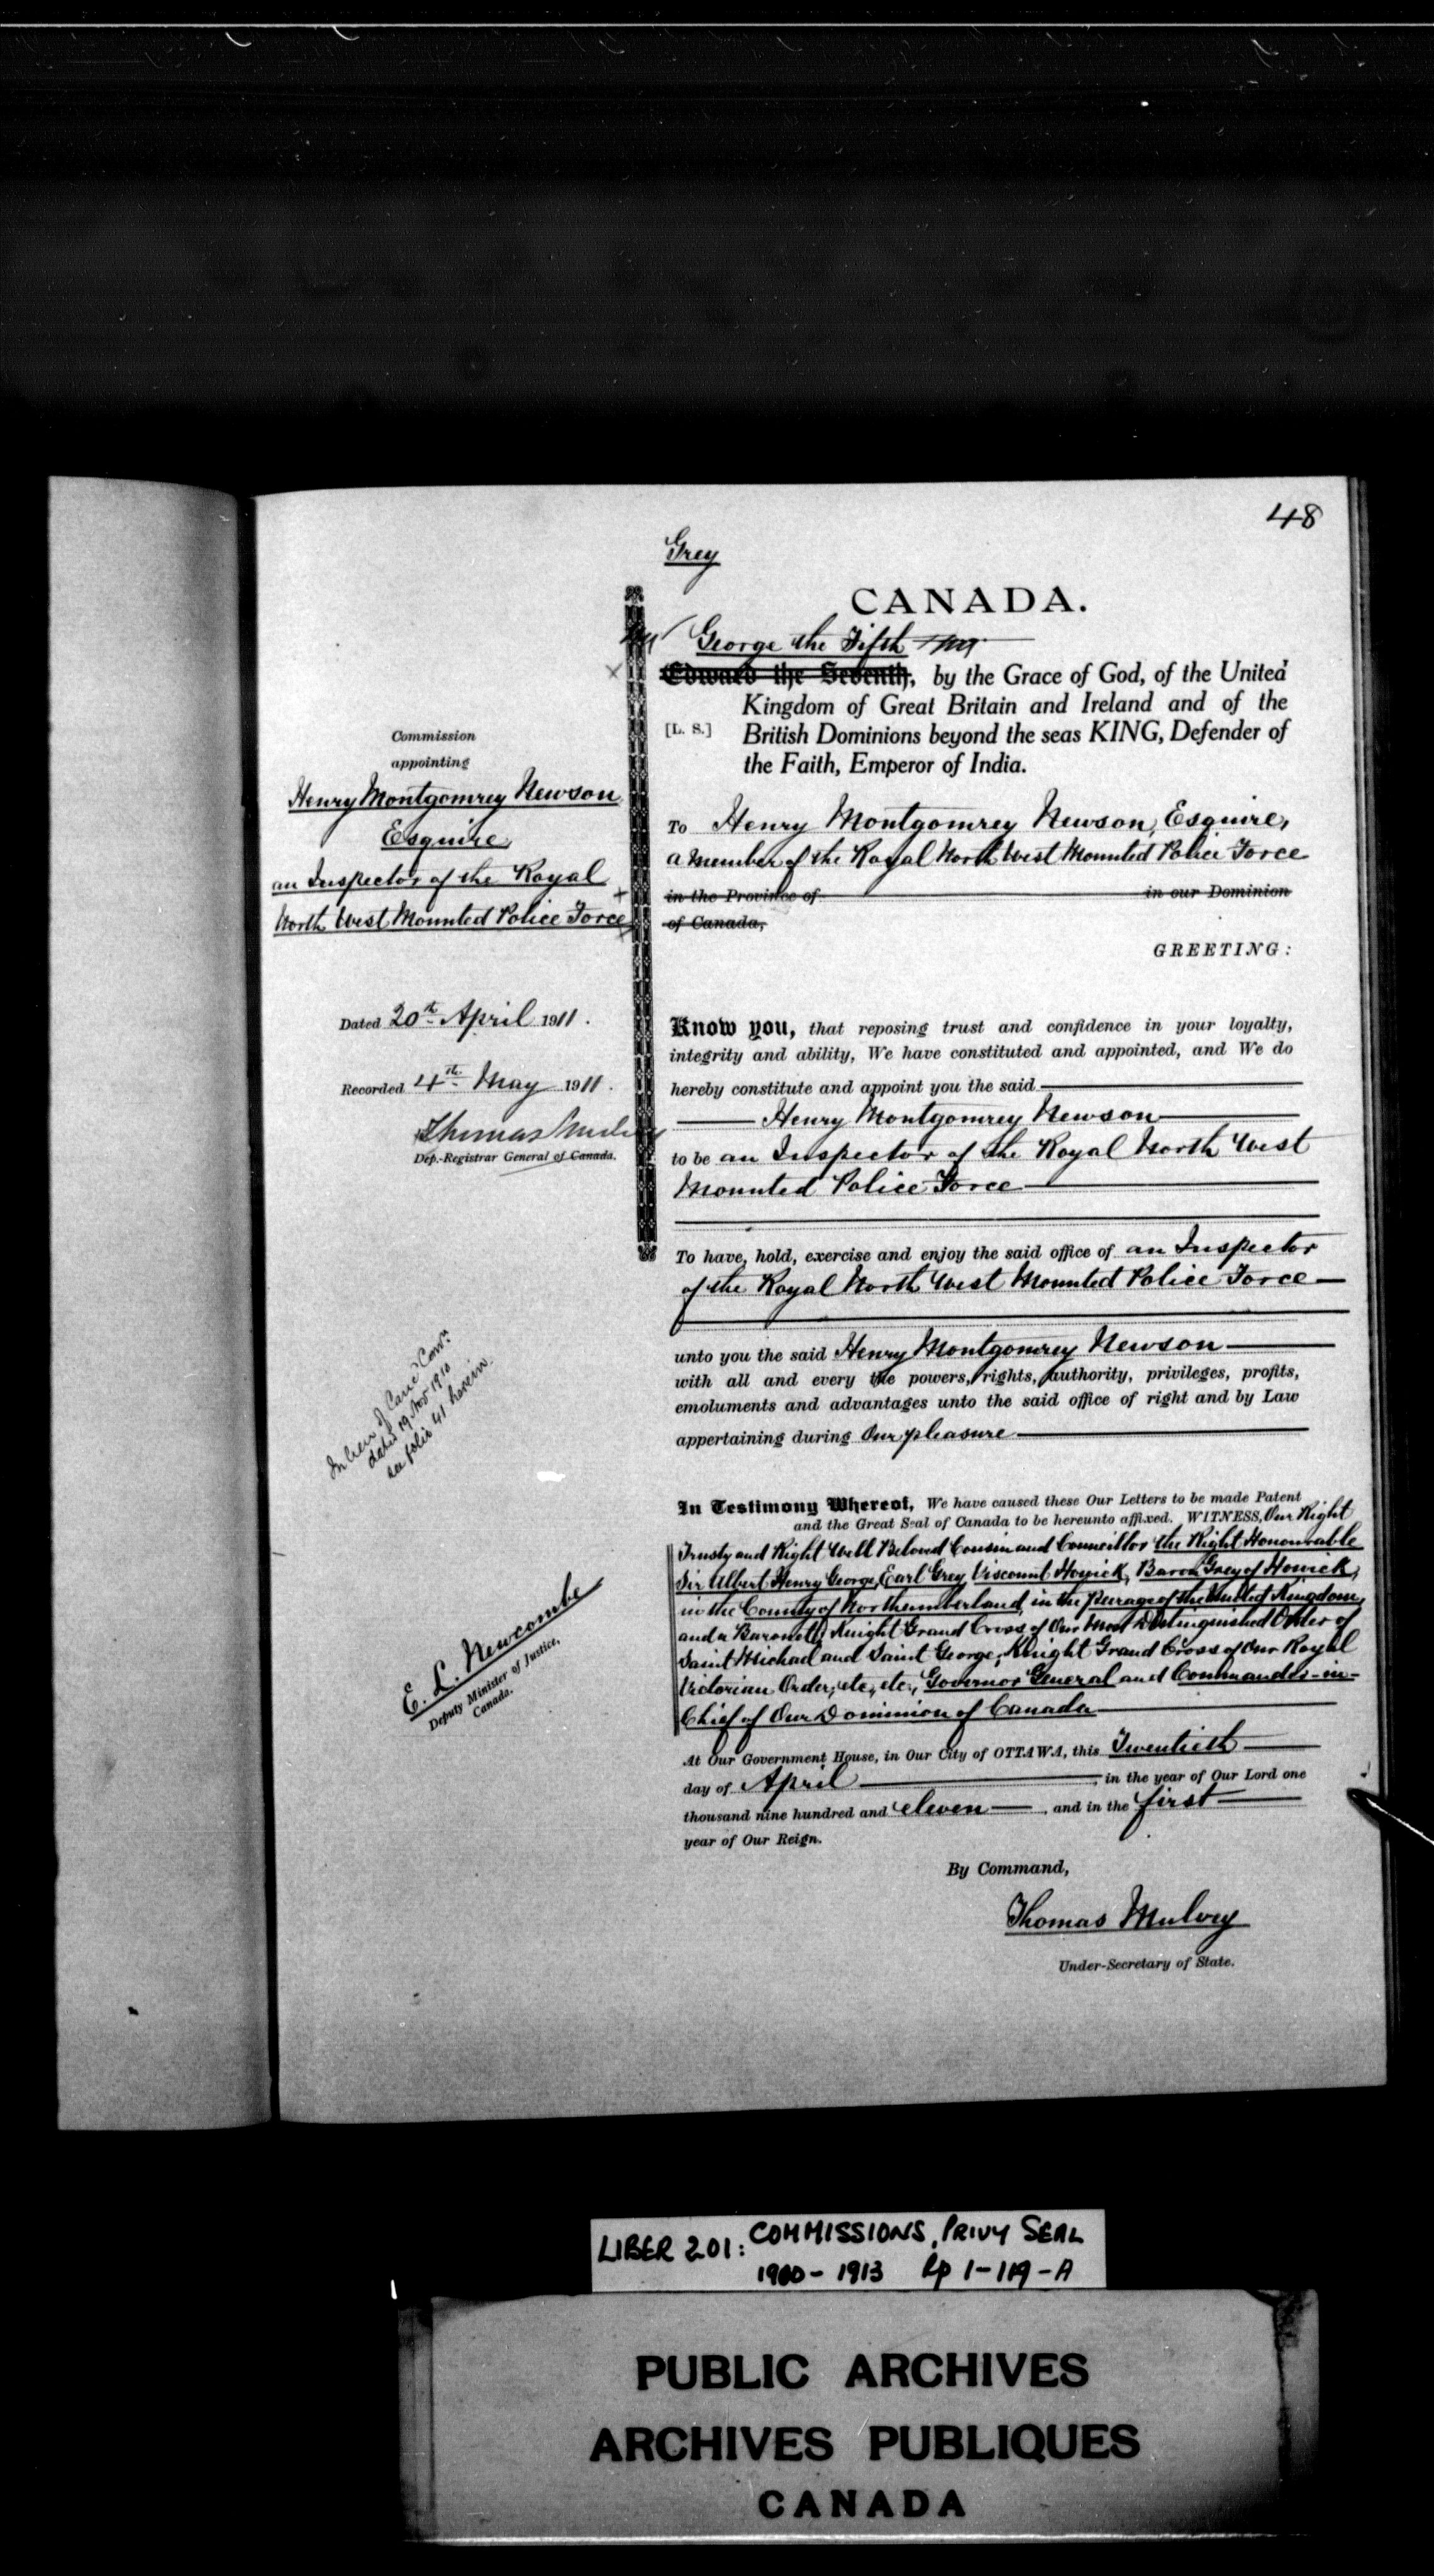 48
Grey
CANADA.
George the Fifth
Edward the Seventh, by the Grace of God, of the United
Kingdom of Great Britain and Ireland and of the
[L. S.] British Dominions beyond the seas KING, Defender of
the Faith, Emperor of India.
Commission
appointing
Henry Montgomrey Newson
Esquire,
an Inspector of the Royal
North West Mounted Police Force
Dated 20th April 1911.
Recorded 4th May 1911.
Thomas Mulvey
Dep.-Registrar General of Canada.
In lieu of Canc Com
dated 19 Nov 1910
see folio 41 herein.
E. L. Newcombe
Deputy Minister of Justice,
Canada.
To Henry Montgomrey Newson, Esquire,
a Member of the Royal North West Mounted Police Force
in the Province of in our Dominion
of Canada,
GREETING:
Know you, that reposing trust and confidence in your loyalty,
integrity and ability, We have constituted and appointed, and We do
hereby constitute and appoint you the said
Henry Montgomrey Newson
to be an Inspector of the Royal North West
Mounted Police Force
To have, hold, exercise and enjoy the said office of an Inspector
of the Royal North West Mounted Police Force
unto you the said Henry Montgomrey Newson
with all and every the powers, rights, authority, privileges, profits,
emoluments and advantages unto the said office of right and by Law
appertaining during Our pleasure
In Testimony Whereof, We have caused these Our Letters to be made Patent
and the Great Seal of Canada to be hereunto affixed. WITNESS, Our Right
Trusty and Right Well Beloved Cousin and Councillor the Right Honourable
Sir Albert Henry George, Earl Grey, Viscount Howick, Baron Grey of Howick,
in the County of Northumberland, in the Peerage of the United Kingdom,
and a Baronet; Knight Grand Cross of Our Most Distinguished Order of
Saint Michael and Saint George; Knight Grand Cross of Our Royal
Victorian Order, etc., etc., Governor General and Commander-in-
Chief of Our Dominion of Canada
At Our Government House, in Our City of OTTAWA, this Twentieth
day of April, in the year of Our Lord one
thousand nine hundred and eleven, and in the first
year of Our Reign.
By Command,
Thomas Mulvey
Under-Secretary of State.
LIBER 201: COMMISSIONS, PRIVY SEAL
1900 - 1913 Pp 1-119-A
PUBLIC ARCHIVES
ARCHIVES PUBLIQUES
CANADA